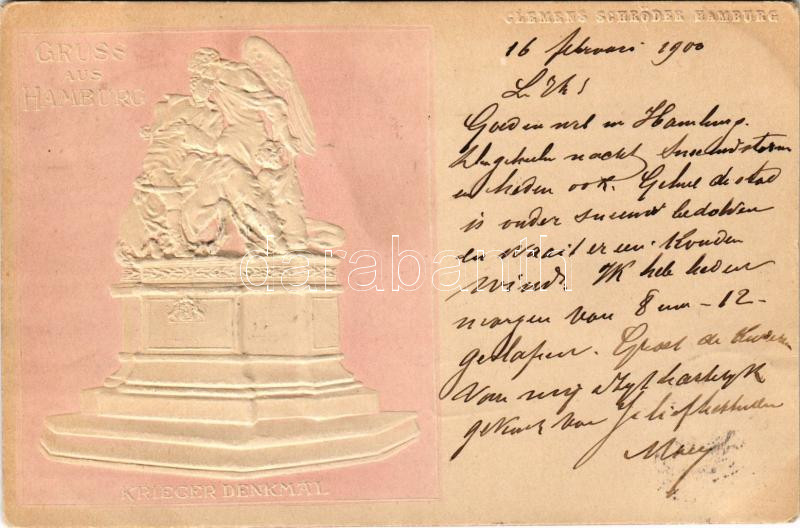 GRUSS
AUS
HAMBURG
KRIEGER DENKMAL
CLEMENS SCHRÖDER HAMBURG
16 februari 1900
Goed en wel in Hamburg.
nacht sneeuwstorm
en heden ook. Geheel de stad
is onder sneeuw bedolven
en waait er een kouden
wind. Ik heb heden
morgen van 8 uur - 12 -
geslapen. Groet de kinderen
Van mij zijt hartelijk
gekust van Je liefhebbende
darabanth